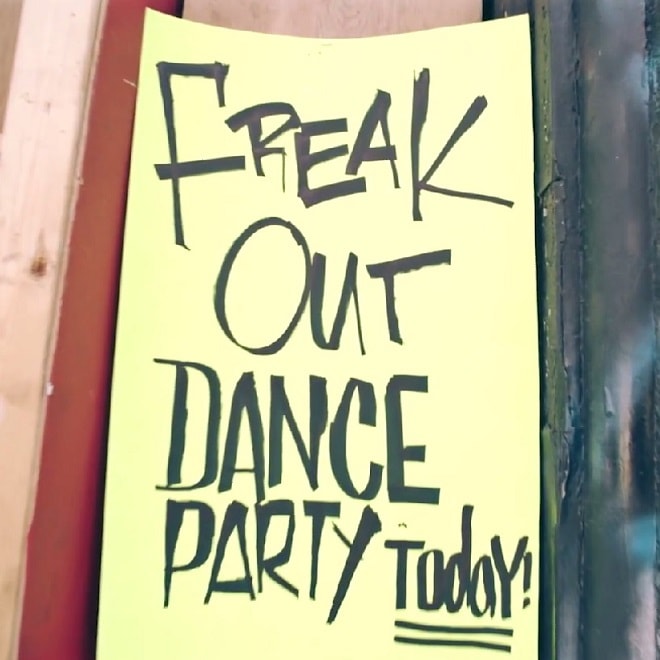 FREAK
OUT
DANCE
PARTY TodaY!